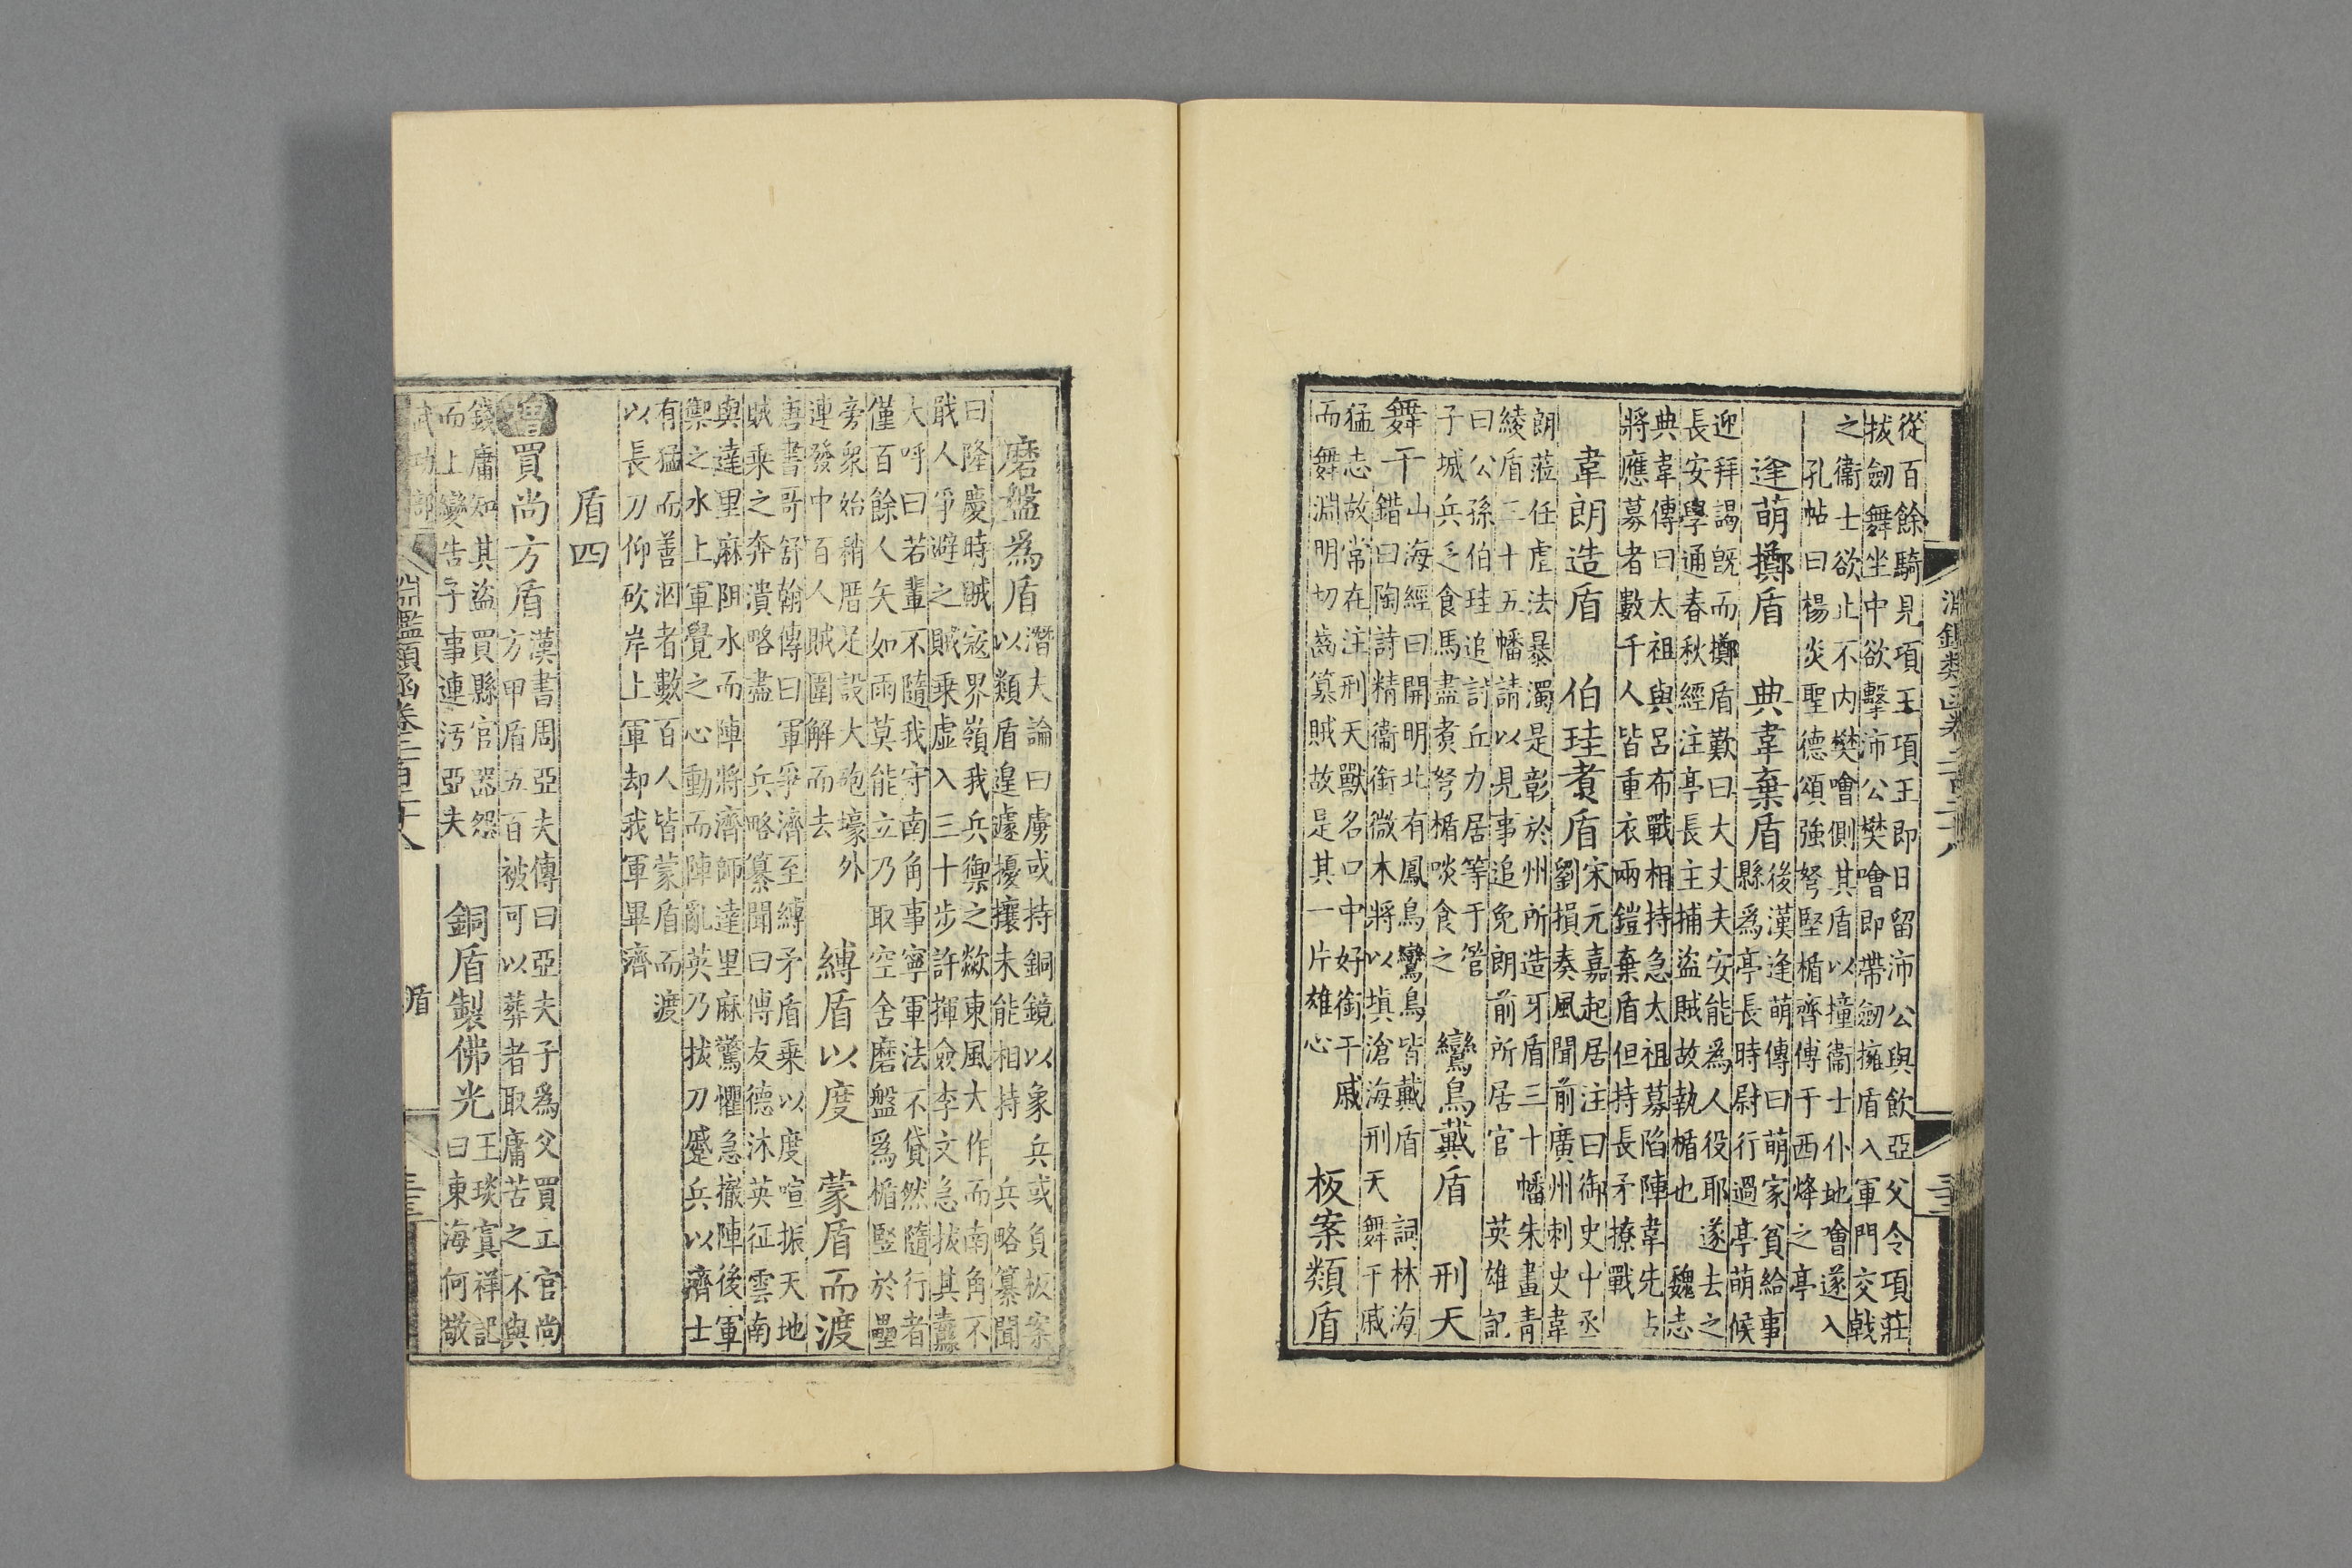 從百餘騎見項王項王即日留沛公與飲亞父令項莊
拔劒舞坐中欲擊沛公樊噲即帶劒擁盾入軍門交戟
之衞士欲止不内樊噲側其盾以撞衞士仆地噲遂入
孔帖曰楊炎聖德頌強弩堅楯齊傅于西烽之亭
逄萌擲盾　典韋棄盾
後漢逄萌傳曰萌家貧給事
縣爲亭長時尉行過亭萌候
迎拜謁旣而擲盾歎曰大丈夫安能爲人役耶遂去之
長安學通春秋經注亭長主捕盜賊故執楯也　魏志
典韋傳曰太祖與呂布戰相持急太祖募陷陣韋先占
將應募者數千人皆重衣兩鎧棄盾但持長矛撩戰
韋朗造盾　伯珪煑盾
宋元嘉起居注曰御史中丞
劉損奏風聞前廣州刺史韋
朗蒞任虐法暴濁是彰於州所造牙盾三十幡朱畫青
綾盾三十五幡請以見事追免朗前所居官　英雄記
曰公孫伯珪追討丘力居等于管
子城兵乏食馬盡煑弩楯啖食之
鸞鳥戴盾　刑天
舞干
山海經曰開明北有鳳鳥鸞鳥皆戴盾　詞林海
錯曰陶詩精衞銜微木將以塡滄海刑天舞干戚
猛志故常在注刑天獸名口中好銜干戚
而舞淵明切齒簒賊故是其一片雄心
板案類盾
磨盤爲盾
潛夫論曰虜或持銅鏡以象兵或負板案
以類盾遑遽擾攘未能相持　兵略纂聞
曰隆慶時賊寇界嶺我兵禦之歘東風大作而南角不
戢人爭避之賊乘虚入三十步許揮僉李文急拔其纛
大呼曰若輩不隨我守南角事寧軍法不貸然隨行者
僅百餘人矢如雨莫能立乃取空舍磨盤爲楯竪於壘
旁衆始稍厝足設大砲壕外
連發中百人賊圍解而去
縛盾以度　蒙盾而渡
唐書哥舒翰傳曰軍爭濟至縛矛盾乗以度喧振天地
賊乘之奔潰略盡　兵略纂聞曰傅友德沐英征雲南
與達里麻阻水而陣將濟師達里麻驚懼急撤陣後軍
禦之水上軍覺之心動而陣亂英乃拔刀蹙兵以濟士
有猛而善泅者數百人皆蒙盾而渡
以長刀仰砍岸上軍却我軍畢濟
盾四
增買尚方盾
漢書周亞夫傳曰亞夫子爲父買工官尚
方甲盾五百被可以葬者取庸苦之不與
錢庸知其盜買縣官器怨
而上變告子事連汚亞夫
銅盾製佛光
王琰冥祥記
曰東海何敬
盾